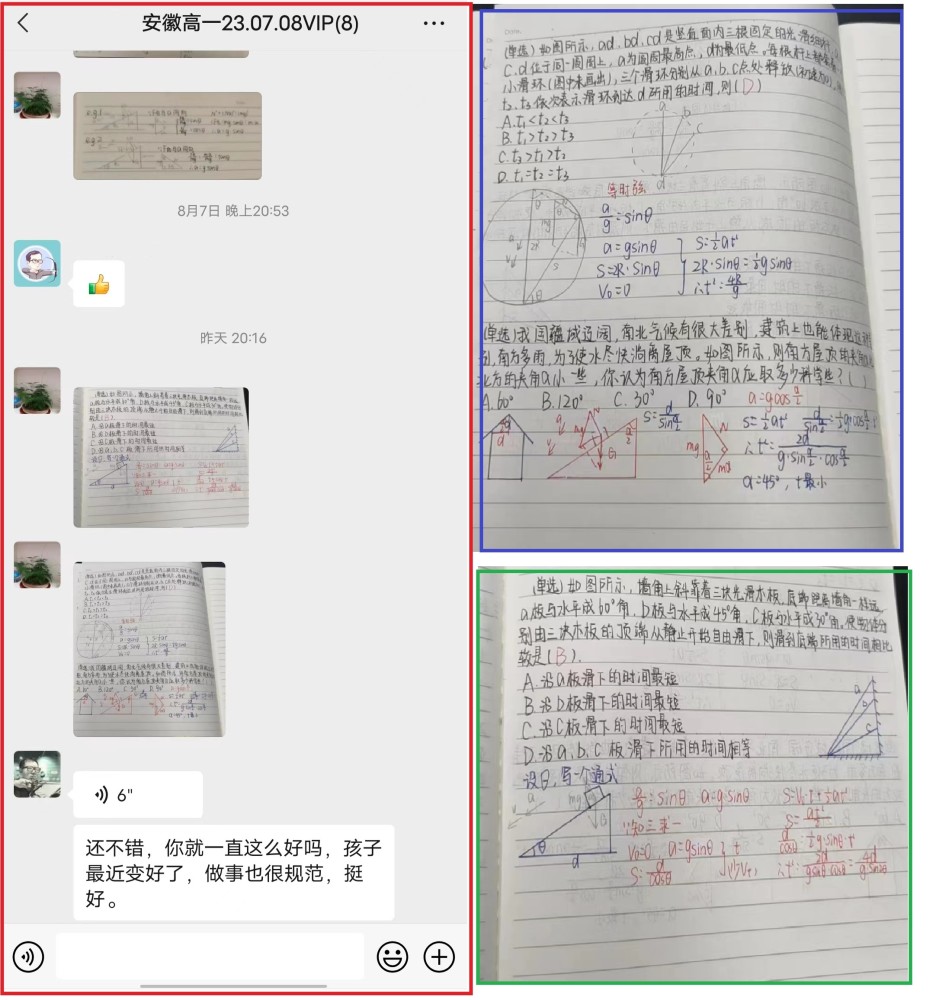 安徽高一23.07.08VIP(8)
8月7日 晚上20:53
昨天 20:16
6"
还不错，你就一直这么好吗，孩子
最近变好了，做事也很规范，挺
好。
(单选)如图所示，ad、bd、cd是竖直面内三根固定的光滑细杆，
C、d位于同一圆周上，a为圆周最高点，d为最低点，每根杆上都套着
小滑环(图中未画出)，三个滑环分别从a、b、c点处释放(初速为0)，
t₂、t₃依次表示滑环到达d所用的时间，则(D)
A.t₁<t₂<t₃
B.t₁>t₂>t₃
C.t₃>t₁>t₂
D.t₁=t₂=t₃
等时弦
a/g=sinθ
a=gsinθ
S=2R·Sinθ
V₀=0
S=½at²
2R·Sinθ=½gsinθ
∴t²=4R/g
(单选)我国疆域辽阔，南北气候有很大差别，建筑上也能体现
别，南方多雨，为了使水尽快淌离屋顶。如图所示，则南方屋顶的夹角α比
北方的夹角α小一些，你认为南方屋顶夹角α应取多少科学些？( )
A.60° B.120° C.30° D.90°
a=gcos α/2
S=d/sin α/2
∴t²=2d/g·sin α/2·cos α/2
α=45°，t最小
(单选)如图所示，墙角上斜靠着三块光滑木板，底脚距离墙角一样远，
a板与水平成60°角，b板与水平成45°角，C板与水平成30°角，
别由三块木板的顶端从静止开始自由滑下，则滑到底端所用的时间相比
较是(B)。
A.沿a板滑下的时间最短
B.沿b板滑下的时间最短
C.沿C板滑下的时间最短
D.沿a、b、c板滑下所用的时间相等
设θ，写一个通式
a/g=sinθ a=g·sinθ
S=V₀t+½at²
知三求一
V₀=0，a=gsinθ
S=d/cosθ
d/cosθ=½g·sinθ·t²
∴t²=2d/gsinθcosθ=4d/gsin2θ